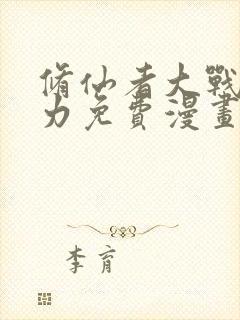 脩仙者大戰
力免費漫畫
李育